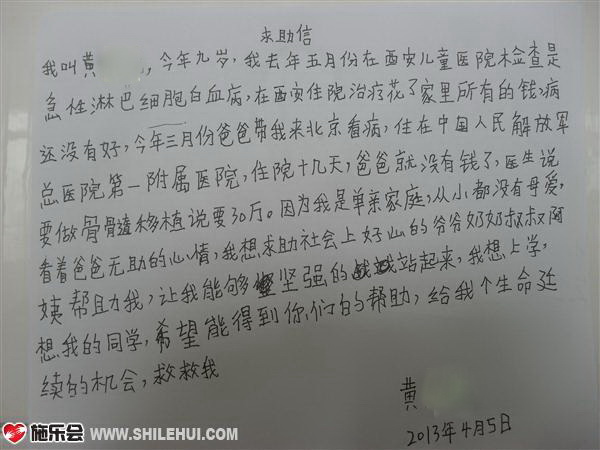 求助信
我叫黄 ,今年九岁,我去年五月份在西安儿童医院检查是
急性淋巴细胞白血病,在西安住院治疗花了家里所有的钱,病
还没有好,今年三月份爸爸带我来北京看病,住在中国人民解放军
总医院第一附属医院,住院十几天,爸爸就没有钱了,医生说
要做骨髓移植说要30万。因为我是单亲家庭,从小都没有母爱,
看着爸爸无助的心情,我想求助社会上好心的爷爷奶奶叔叔阿
姨帮助我,让我能够坚强的站起来,我想上学,
想我的同学,希望能得到你们的帮助,给我个生命延
续的机会,救救我
黄
2013年4月5日
施乐会 WWW.SHILEHUI.COM